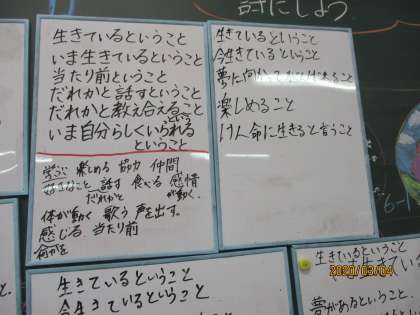 詩にしよう
生きているということ
いま生きているということ
当たり前ということ
だれかと話すということ
だれかと教え合えること
いま自分らしくいられる
ということ
学ぶ 楽しめる 協力 仲間
好きなこと 話す 食べる 感情
だれかと が動く
体が動く 歌う 声を出す。
感じる 当たり前
何かを
生きているということ
今生きているということ
夢に向かって
楽しめること
けん命に生きると言うこと
生きているということ
今生きているということ
生きているということ
いま生きている
夢があるということ
2020/03/04